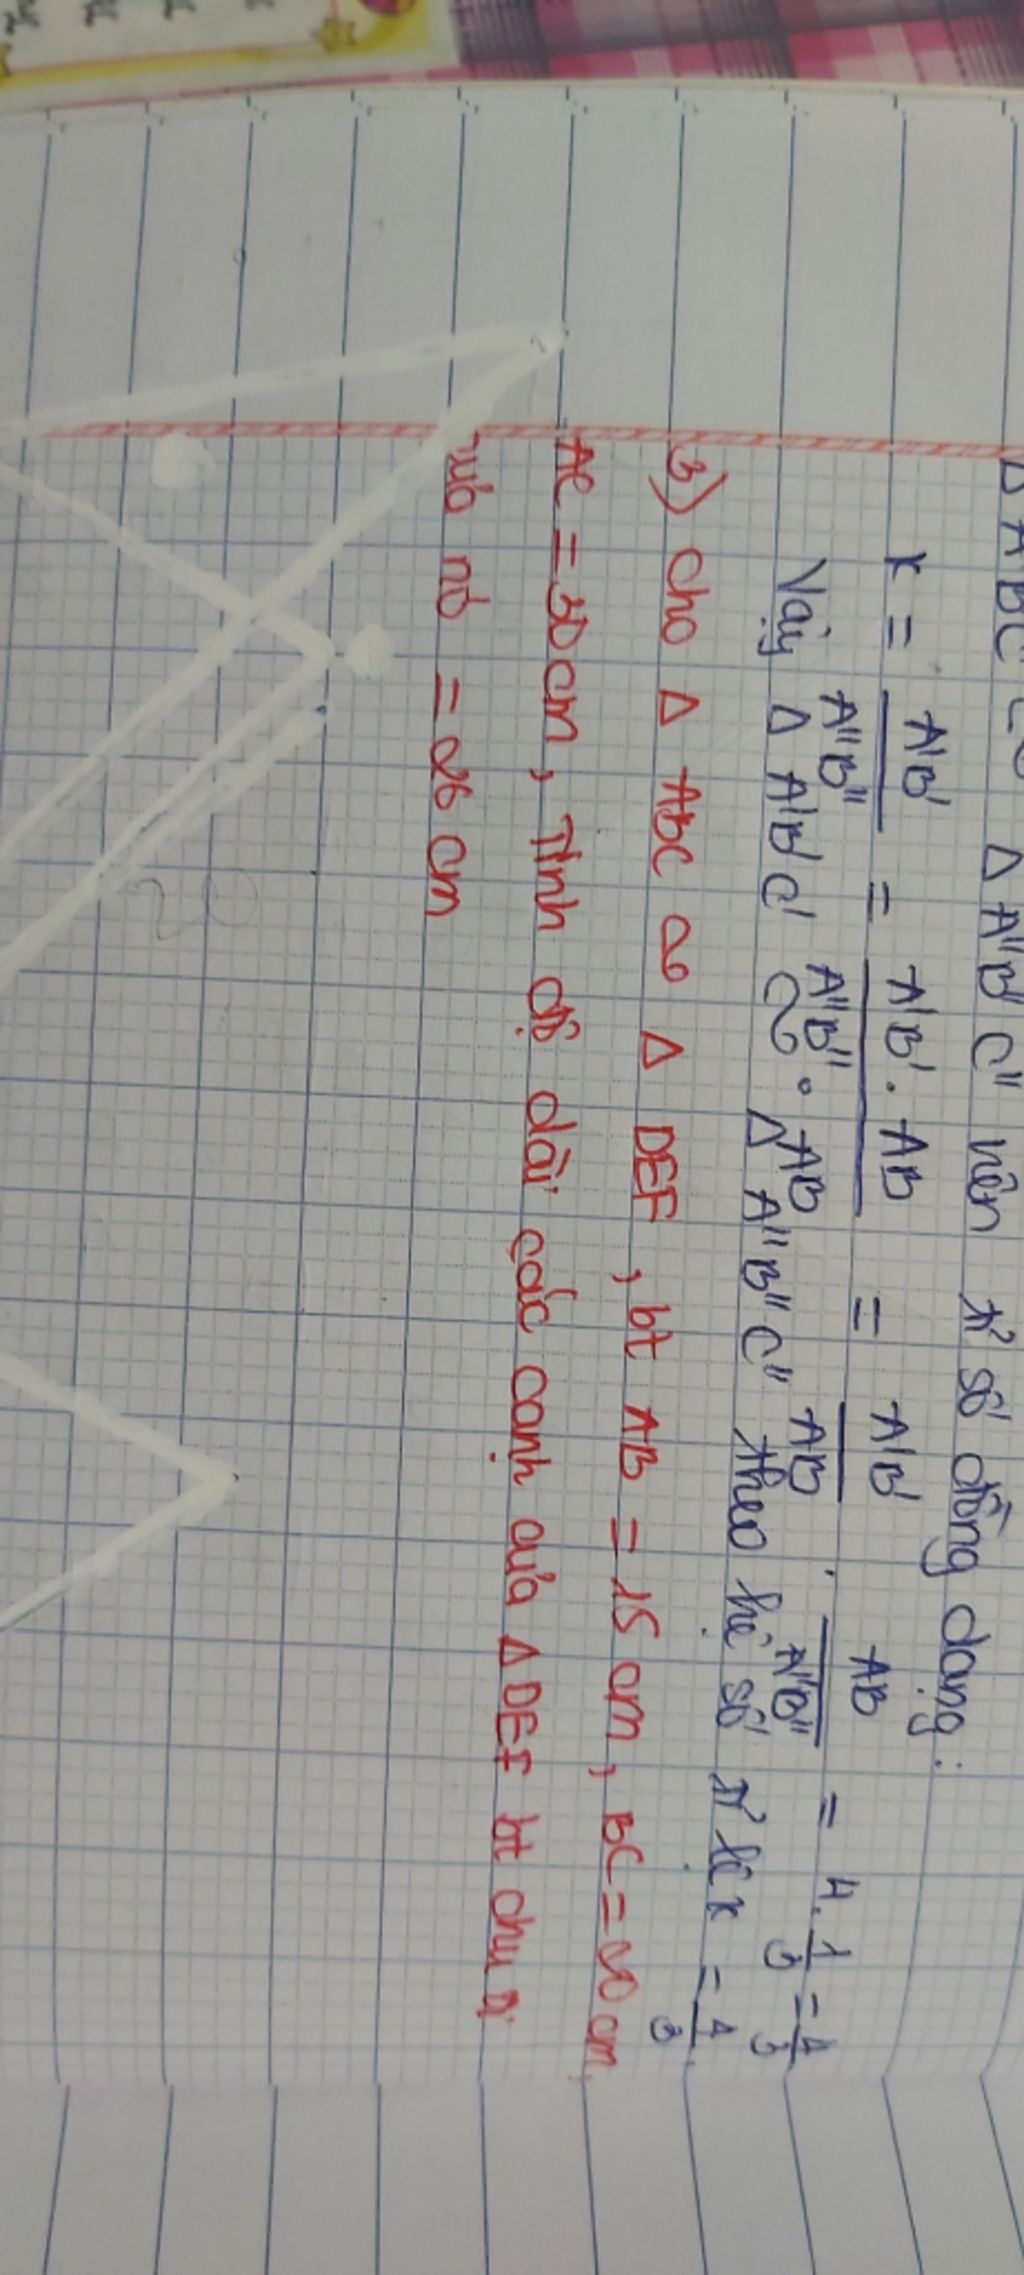 Δ ABC ∽ Δ A"B"C" nên tỉ số đồng dạng:
k = A'B'/A"B" = A'B'.AB/A"B".AB = A'B'/AB . AB/A"B" = 4.1/3 = 4/3
Vậy Δ A'B'C' ∽ Δ A"B"C" theo hệ số tỉ lệ k = 4/3
3) cho Δ ABC ∽ Δ DEF, bt AB = 15 cm, BC = 20 cm,
AC = 30 cm, Tính độ dài các cạnh của Δ DEF bt chu vi
của nó = 26 cm